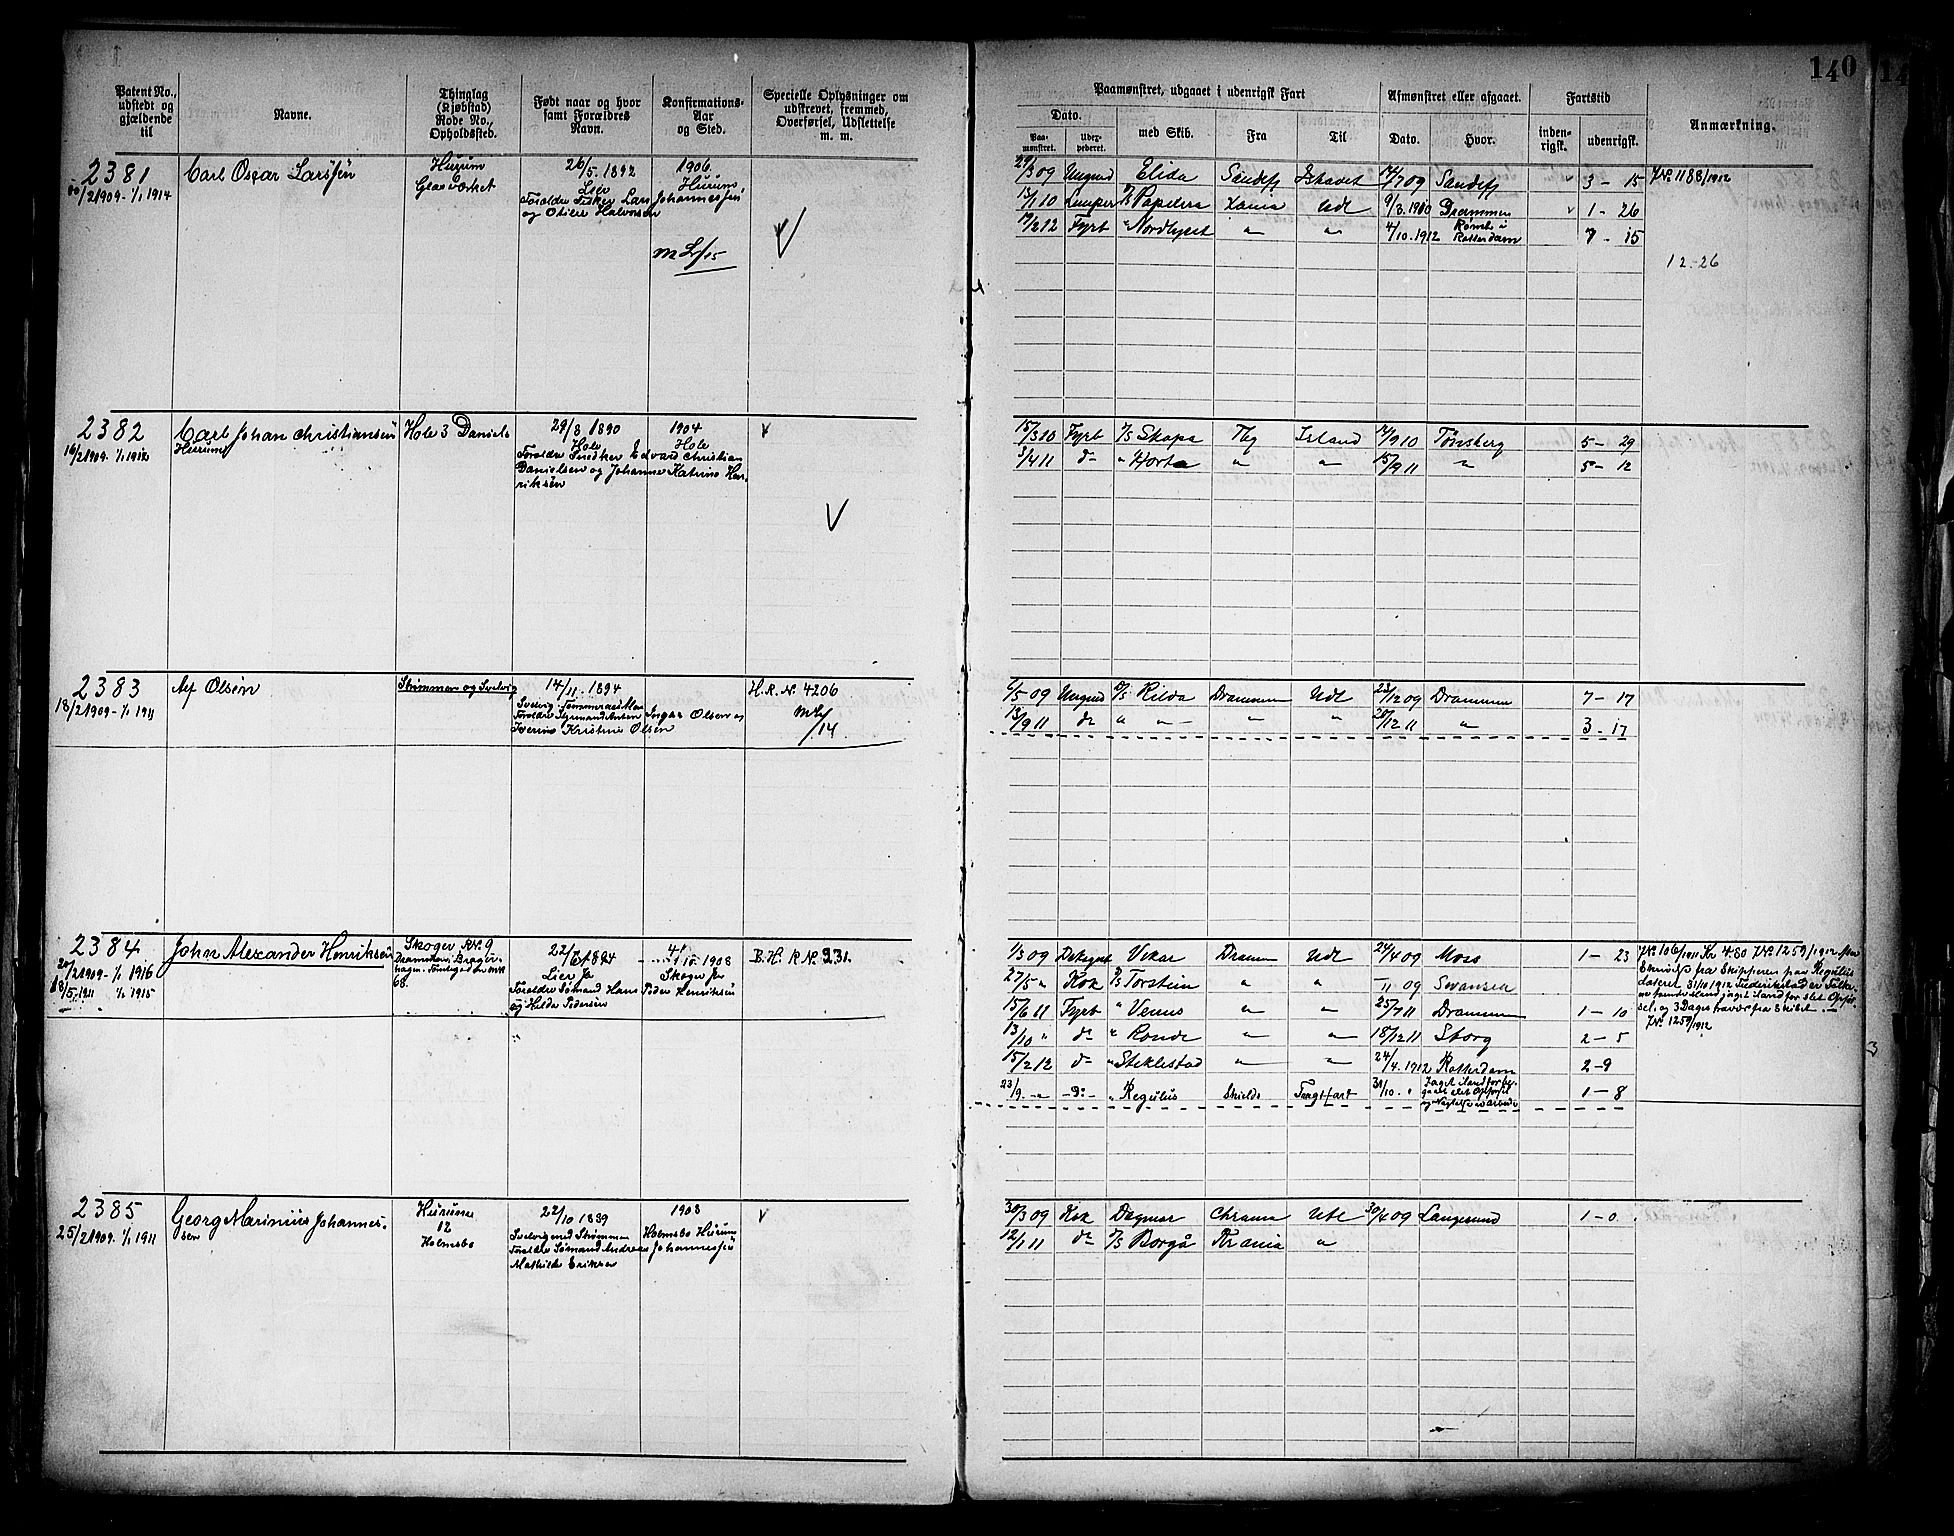 140
Patent No., udstedt og gjældende til
Navne.
Thinglag (Kjøbstad) Rode No., Opholdssted.
Født naar og hvor samt Forældres Navn.
Konfirmations- Aar og Sted.
Specielle Oplysninger om udskrevet, fremmed, Overførsel, Udslettelse m. m.
Paamønstret, udgaaet i udenrigsk Fart
Afmønstret eller afgaaet.
Fartstid
Anmærkning.
Dato.
Paa- mønstret.
med Skib.
Fra
Til
Dato.
Hvor.
inden- rigsk.
udenrigsk.
2381
Carl Oscar Larsen
Hurum
6
Glasværket
26/5. 1892
Lier
Forældre Fisker Lars Johannessen
og Otilie Halvorsen
1906.
Hurum
/2 1909 - 1/1 1914
29/3 09 Ungmd Elida Sandefj Ishavet 14/7 09 Sandefj 3 - 15 JNr. 1188/1912
15/1 10 Lemper D/S Papelera Xania Udl 9/3. 1910 Drammen 1 - 26
17/2 12 Fyrb " Nordlyset " " 4/10. 1912 Rotterdam 7 - 15
12-26
2382
Carl Johan Christiansen
Hurum
16/2 1909 - 1/1 1912
Hole 3 Daniels
29/8 1890
Hole
Forældre Snedker Edvard Christian
Danielsen og Johanne Katrine Hen-
riksen
1904
Hole
15/3 10 Fyrb D/S Skapa Tbg Island 14/9 10 Tønsberg 5 - 29
3/4 11 do " Horta " " 15/9 11 " 5 - 12
2383
Alf Olsen
18/2 1909 - 1/1 1911
Strømmen og Svelvig
14/11. 1894
Forældre Styrmand Anton Olsen og
Iverine Kristine Olsen
H.R. Nr. 4206
/14
6/5 09 Ungmd D/S Rilda Drammen Udl 23/12 09 Drammen 7 - 17
13/9 11 do " " " " 20/12 11 " 3 - 17
2384
John Alexander Henriksen
20/2 1909 - 1/1 1916
18/5 1911 1/1 1915
Skoger RNr. 9
68.
Lier
Forældre Sømand Hans Peder Henriksen
og Hilda Pedersen
1908
Skoger
B.H. R Nr. 231.
1/3 09 Dæksgut Vikar Drammen Udl 24/4 09 Moss 1 - 23
27/5 " Kok D/S Torstein " " 09 Swansea
15/6 11 Fyrb " Venus " " 25/7 11 Drammen 1 - 10
13/10 " do " Ronde " " 18/12 11 Sborg 2 - 5
15/2 12 do " Stiklestad " " 24/4. 1912 Rotterdam 2 - 9
23/9. " do " Regulus Shields Fragtfart 31/10. " Jaget iland for be-
gaaet slet Opførsel
og Nægtelse av Arbeide 1 - 8
JNr. 106/1911 Kr 4.80 JNr. 1259/1912
Skrivelse fra Skipperen paa Regulus
dateret 31/10 1912 Frederikstad er
jaget iland for slet Opfør-
sel og 3 Dages fravær fra Skibet.
JNr. 1259/1912
2385
Georg Marinius Johannes-
sen
25/2 1909. 1/1 1911
Hurum
12
Holmsbo
22/10 1889
Svelvig med Strømmen
Forældre Sømand Andreas Johannessen
Mathilde Eriksen
1903
Holmsbo Hurum
30/3 09 Kok Dagmar Chrania Udl 30/4 09 Langesund 1 - 0
12/1 11 do D/S Borgå Krania "